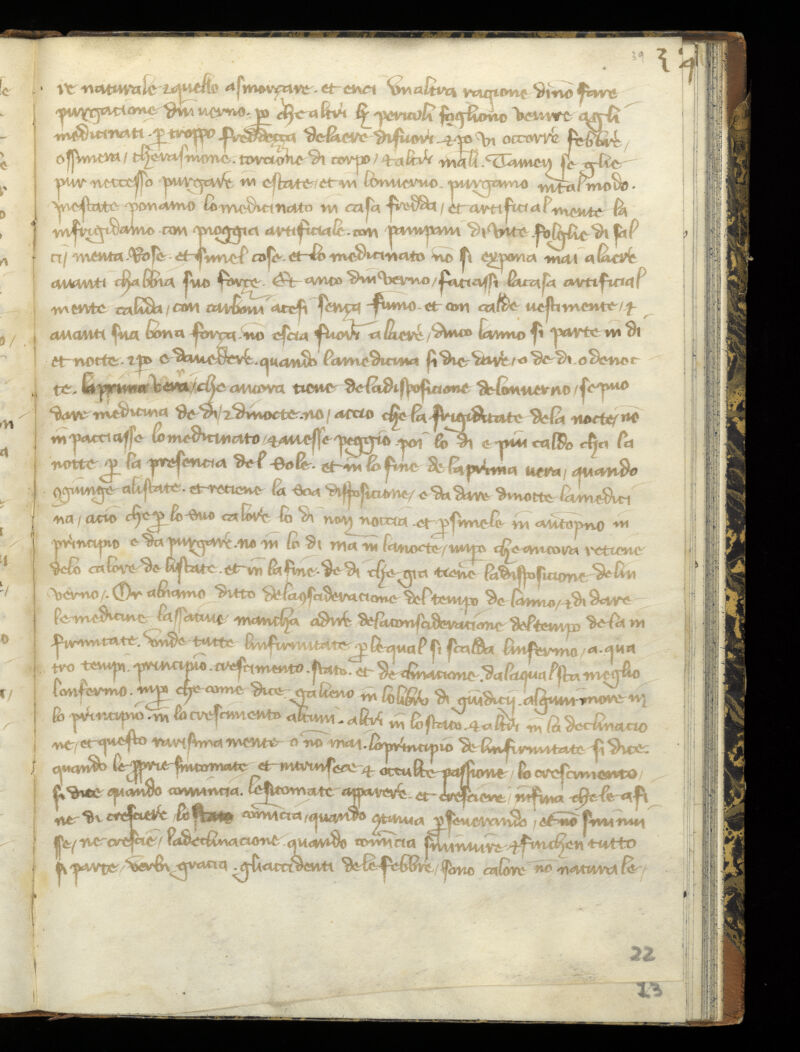 39 34
re naturale et quello asmorçare. et enci vn altra ragione di nō fare
purgacione diīuerno. p̱o che altri li pericoli sogliono venire agli
medicinati. p̱ troppo freddeçça delaere difuori. et p̱o vi occorre febbre,
ossimera, cherasmone. torcione di corpo, et altri mali. Tamen se glie
pur necesso purgare in estate, et in lonuerno. purgamo in tal modo.
Inestate ponamo lo medicinato in casa fredda, et artificialmente la
infrigidamo con pioggia artificiale. con pampani di vite folglie di sal
ci, menta Rose. et simel cose. et lo medicinato nō si expona mai alaere
auanti chabbia suo forçe. Et anco diīuerno, faciassi lacasa artificial
mente calida, con carboni acesi sença fumo. et con calde uestimente, et
auanti sua bona força. nō escia fuori alaere, Anco lanno si parte in di
et nocte. et p̱o e dauedere. quando la medicina si die dare, o de di. o denoc
te. la prima vera, che ancora tiene deladisposicione delonuerno, sepuo
dare medicina de di, et dinocte. no, accio che la frigiditate dela nocte, nō
inpacciasse lo medicinato, et auesse peggio poi lo di e piu caldo cha la
notte p̱ la presencia del Sole. et in lo fine de la prima uera, quando
ꝯgiunge alistate. et retiene la Sua disposicione, e da dare dinotte la medici
na, acio che p̱ lo Suo calore lo di non noccia. et p̱ simele in autōpno in
principio e da purgare. no in lo di ma in la nocte, imp̱o che ancora retiene
delo calore de listate. et in la fine. de di che gia tiene ladisposicione delin
verno,. Or abiamo ditto dela ꝯsideracione del tempo de lanno, et di dare
le medicine lassatiue, mancha adire delaconsideracione deltempo dela in
firmitate. Unde tutte linfirmitate p̱ le qual si scalda linfermo, a. qua
tro tempi. principio. crescimento. stato. et declinacione. dalaqual sta meglio
lonfermo. imp̱o che come dice galieno in lolibro di giudicij. alguni more in
lo principio. in lo crescimento alcuni. altri in lo stato. et altri in la declinacio
ne, et questo rarissima mente o nō mai. lo principio de linfirmitate si dice.
quando le proprie sintomate et intrinsece et occulte passione, lo crescimento,
si dice quando comincia. lesitomate apparere. et cresciere, infina che le a fi
ne di cresciere, lo stato comīcia, quando ꝯtinua p̱seuerando, et nō sminui
sse, ne crescie, ladeclinacione. quando comīcia sminuire. et finchen tutto
si parte, verbi gracia. gli accidenti dele febbre, sono calore nō naturale,
22
13